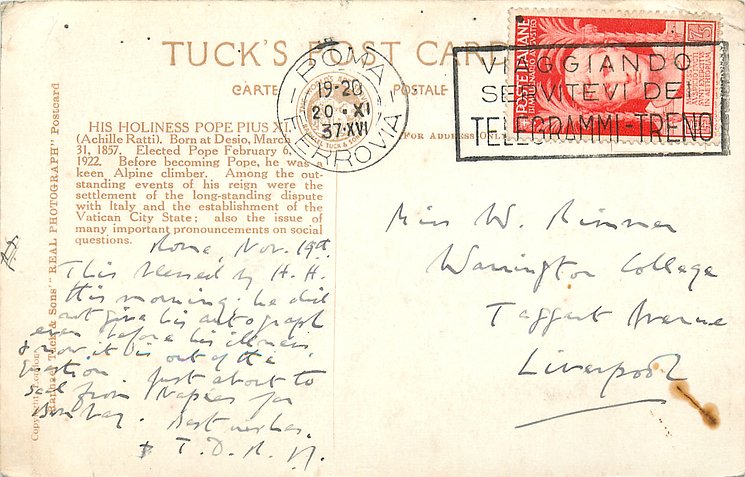 TUCK'S POST CARD
CARTE POSTALE
FOR ADDRESS ONLY
ROMA
19-20
20 · XI
37·XVI
FERROVIA
POSTE ITALIANE
VIAGGIANDO
SERVITEVI DEI
TELEGRAMMI-TRENO
HIS HOLINESS POPE PIUS XI.
(Achille Ratti). Born at Desio, March
31, 1857. Elected Pope February 6,
1922. Before becoming Pope, he was a
keen Alpine climber. Among the out-
standing events of his reign were the
settlement of the long-standing dispute
with Italy and the establishment of the
Vatican City State; also the issue of
many important pronouncements on social
questions.
Rome, Nov. 19th
This blessed by H. H.
this morning: he did
not give his autograph
even before his illness,
& now it is out of the
question. Just about to
sail from Naples for
Bombay. Best wishes.
+ T. D. R.
Miss W. Rimmer
Warrington College
Taggart Avenue
Liverpool
Raphael Tuck & Sons' "REAL PHOTOGRAPH" Postcard
Copyright London